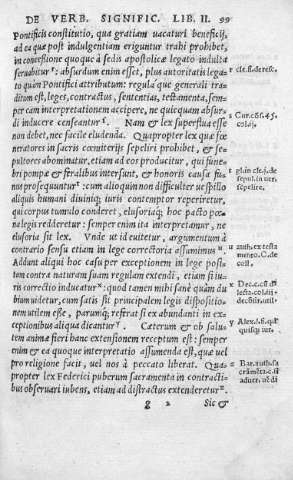 DE VERB. SIGNIFIC. LIB. II. 99
Pontificis constitutio, qua gratiam vacaturi beneficij,
ad ea quæ post indulgentiam eriguntur trahi prohibet,
in concessione quoque à sedis apostolicæ legato indulta
seruabitur r: absurdum enim esset, plus autoritatis lega-
to quàm Pontifici attributum: regula quæ generali tra-
ditum est, leges, contractus, sententias, testamenta, sem-
per cam interpretationem accipere, ne quicquam absur-
di inducere censeantur s. Nam & lex superflua esse
non debet, nec facile eludenda. Quapropter lex quæ fœ-
neratores in sacris cœmiterijs sepeliri prohibet, & se-
pultores abominatur, etiam ad eos producitur, qui fune-
bri pompæ & feralibus intersunt, & honoris causa fu-
nus prosequuntur t: cum alioquin non difficulter vespillo
aliquis humani diuiniq; iuris contemptor reperiretur,
qui corpus tumulo conderet, elusoriaq; hoc pacto pœ-
na legis redderetur: semper enim ita interpretamur, ne
elusoria sit lex. Vnde vt id euitetur, argumentum à
contrario sensu etiam in lege correctoria assumimus u.
Addunt aliqui hoc casu per exceptionem in lege posi-
tam contra naturam suam regulam extendi, etiam si iu-
ris correctio inducatur x: quod tamen mihi sanè quàm du
bium videtur, cum satis sit principalem legis dispositio-
nem vtilem esse, parumq; refrat si ex abundanti in ex-
ceptionibus aliqua dicantur y. Cæterum & ob salu-
tem animæ fieri hanc extensionem receptum est: semper
enim & ea quoque interpretatio assumenda est, quæ vel
pro religione facit, vel nos à peccato liberat. Qua-
propter lex Federici puberum sacramenta in contracti-
bus obseruari iubens, etiam ad distractus extenderetur z.
g 2 Sic &
r cle. si. de resc.
s Cur. cõs. 45.
t gl. in cle. j. de
sepul. in ver.
sepelire.
u auth. ex testa
y Alex. l. si. q̃
z Bar. auth. sa